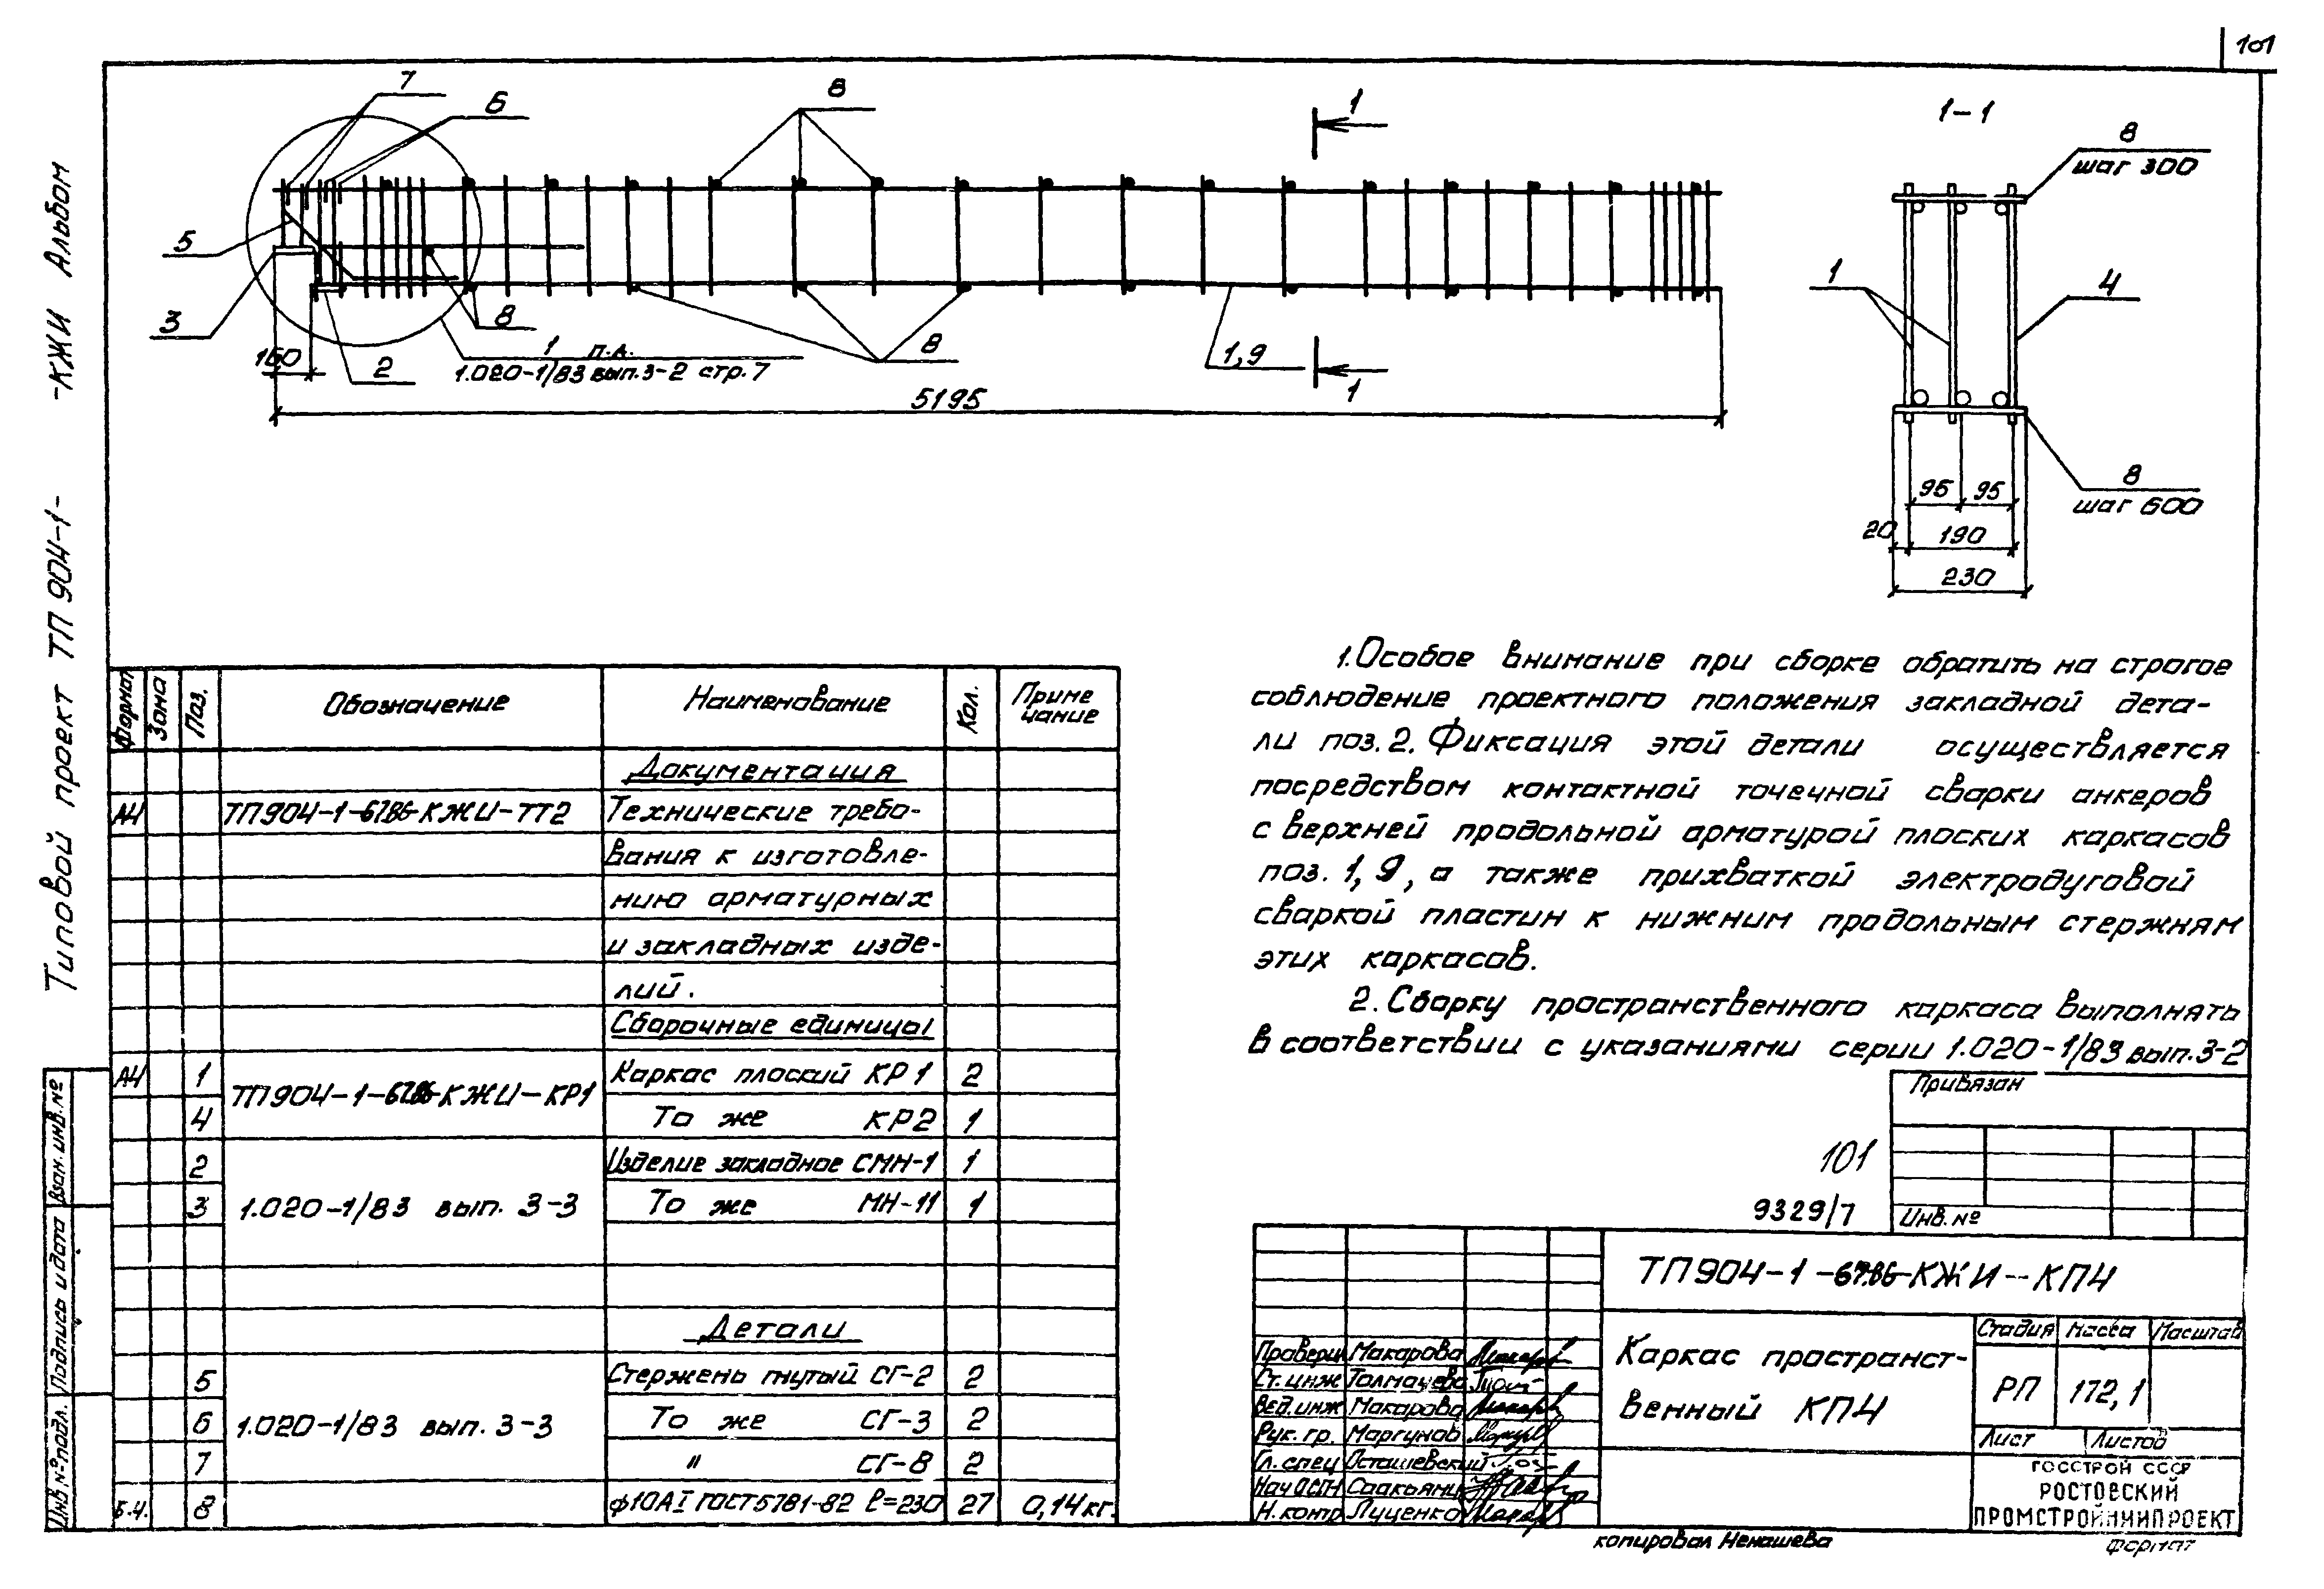 101
7
6
8
1
1-1
8
шаг 300
5
3
8
8
1
4
160
2
1 п.л.
1.020-1/83 вып.3-2 стр.7
1,9
1
5195
8
шаг 600
95 95
20 190
230
Типовой проект ТП 904-1- -КЖИ Альбом
1. Особое внимание при сборке обратить на строгое
соблюдение проектного положения закладной дета-
ли поз. 2. Фиксация этой детали осуществляется
посредством контактной точечной сварки анкеров
с верхней продольной арматурой плоских каркасов
поз. 1, 9, а также прихваткой электродуговой
сваркой пластин к нижним продольным стержням
этих каркасов.
2. Сборку пространственного каркаса выполнять
в соответствии с указаниями серии 1.020-1/83 вып.3-2
Формат Зона Поз. Обозначение Наименование Кол. Приме
чание
Документация
А4 ТП904-1-67.86-КЖИ-ТТ2 Технические требо-
вания к изготовле-
нию арматурных
и закладных изде-
лий.
Сборочные единицы
А4 1 ТП904-1-67.86-КЖИ-КР1 Каркас плоский КР1 2
4 То же КР2 1
2 Изделие закладное СМН-1 1
3 1.020-1/83 вып. 3-3 То же МН-11 1
Детали
5 Стержень гнутый СГ-2 2
6 1.020-1/83 вып. 3-3 То же СГ-3 2
7 " СГ-8 2
Б.Ч. 8 ф10АI ГОСТ5781-82 ℓ=230 27 0,14кг.
Инв № подл. Подпись и дата Взам. инв. №
Привязан
Инв. №
101
9329/7
ТП904-1-67.86-КЖИ-КП4
Проверил Макарова
Ст. инж Толмачева
Вед. инж Макарова
Рук. гр. Моргунов
Гл. спец Осташевский
Нач ОСП Саакьянц
Н. контр Луценко
Каркас пространст-
венный КП4
Стадия Масса Масштаб
РП 172,1
Лист Листов
ГОССТРОЙ СССР
РОСТОВСКИЙ
ПРОМСТРОЙНИИПРОЕКТ
копировал Ненашева
формат